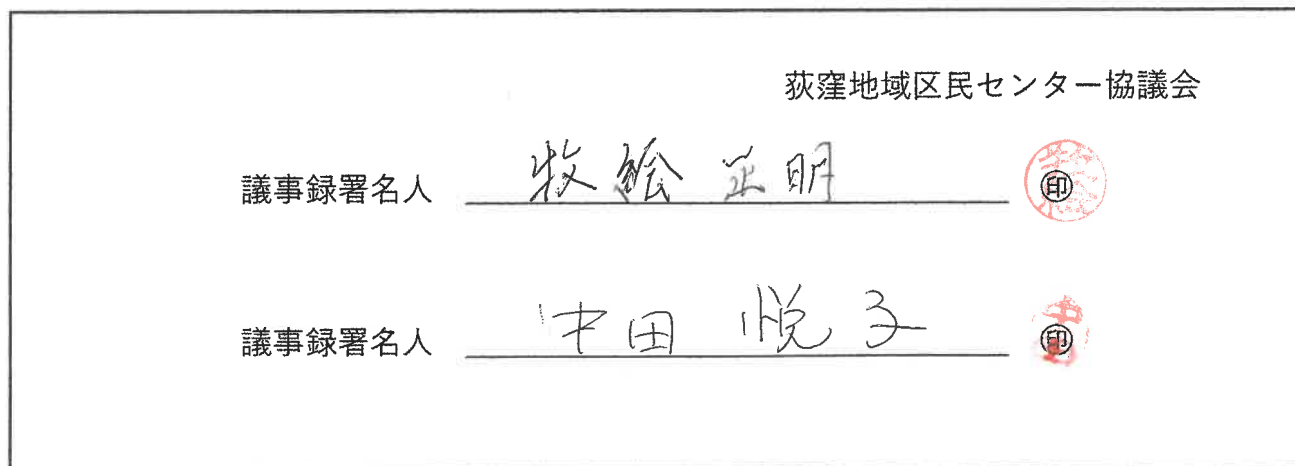 荻窪地域区民センター協議会
議事録署名人 牧絵 正明 ㊞
議事録署名人 中田 悦子 ㊞